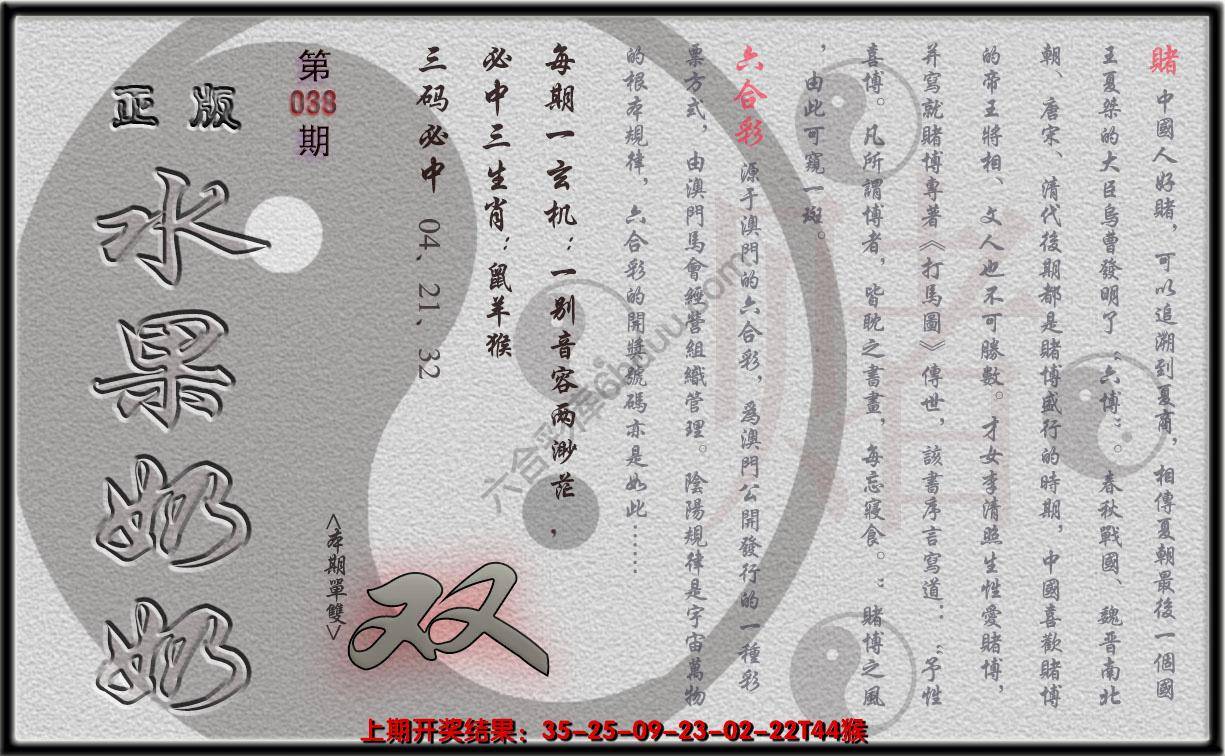 賭 中國人好賭，可以追溯到夏商，相傳夏朝最後一個國
王夏桀的大臣烏曹發明了“六博”。春秋戰國、魏晋南北
朝、唐宋、清代後期都是賭博盛行的時期，中國喜歡賭博
的帝王將相、文人也不可勝數。才女李清照生性愛賭博，
并寫就賭博專著《打馬圖》傳世，該書序言寫道：“予性
喜博。凡所謂博者，皆耽之書畫，每忘寢食。：賭博之風
，由此可窺一斑。
六合彩 源于澳門的六合彩，爲澳門公開發行的一種彩
票方式，由澳門馬會經營組織管理。陰陽規律是宇宙萬物
的根本規律，六合彩的開獎號碼亦是如此……
每期一玄机：一别音容两渺茫，
必中三生肖：鼠羊猴
三码必中 04. 21. 32
第038期
正版
水果奶奶
<本期單雙>
双
六合彩库6hduu.com
上期开奖结果：35-25-09-23-02-22T44猴